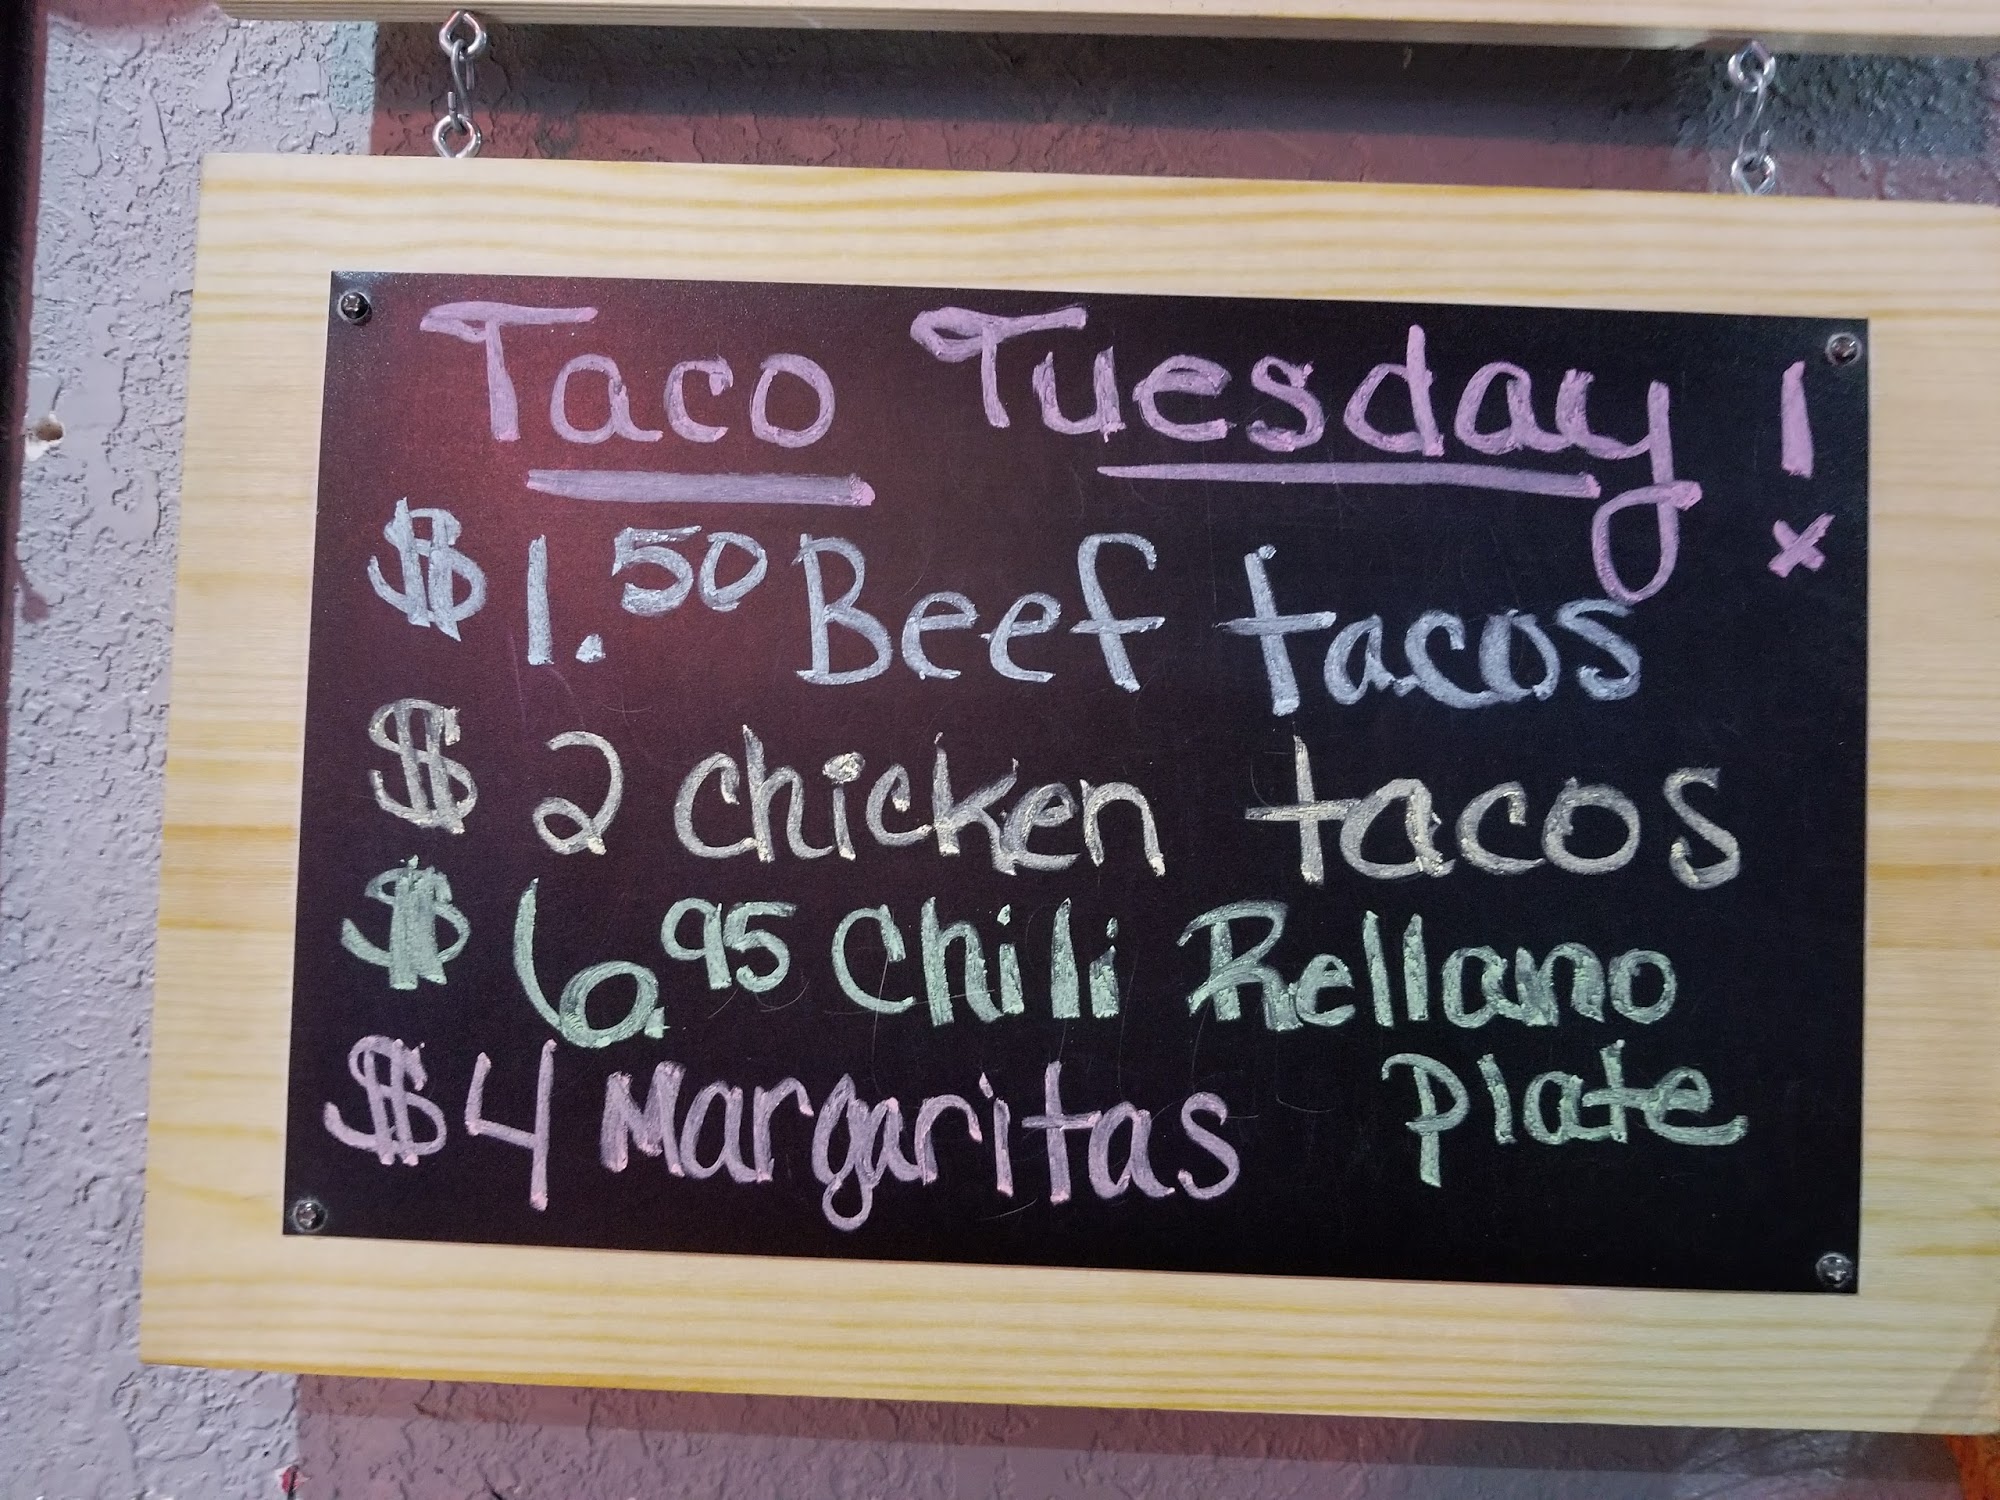 Taco Tuesday!
$1.50 Beef tacos
$2 chicken tacos
$6.95 Chili Rellano
Plate
$4 Margaritas